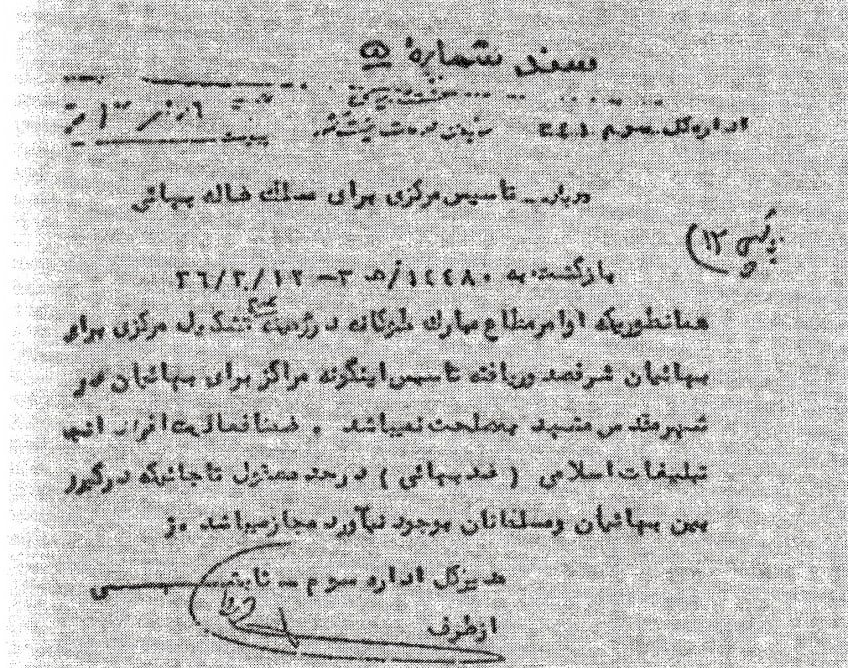 سند شماره ۵
اداره کل سوم ۳۴۱
پیوست
درباره ـ تاسیس مرکزی برای مسلک ضاله بهائی
بازگشت به ۱۲۴۸۰/ه ۳ – ۳۶/۲/۱۲
همانطوریکه اوامر مطاع مبارک ملوکانه در زمینه عدم تشکیل مرکزی برای
بهائیان شرفصدور یافته تاسیس اینگونه مراکز برای بهائیان در
شهر مقدس مشهد بمصلحت نمیباشد . ضمنا فعالیت افراد انجمن
تبلیغات اسلامی ( ضد بهائی ) در حد معقول تا جائیکه درگیری
بین بهائیان ومسلمانان بوجود نیآورد مجاز میباشد .
مدیرکل اداره سوم ـ ثابتی
از طرف